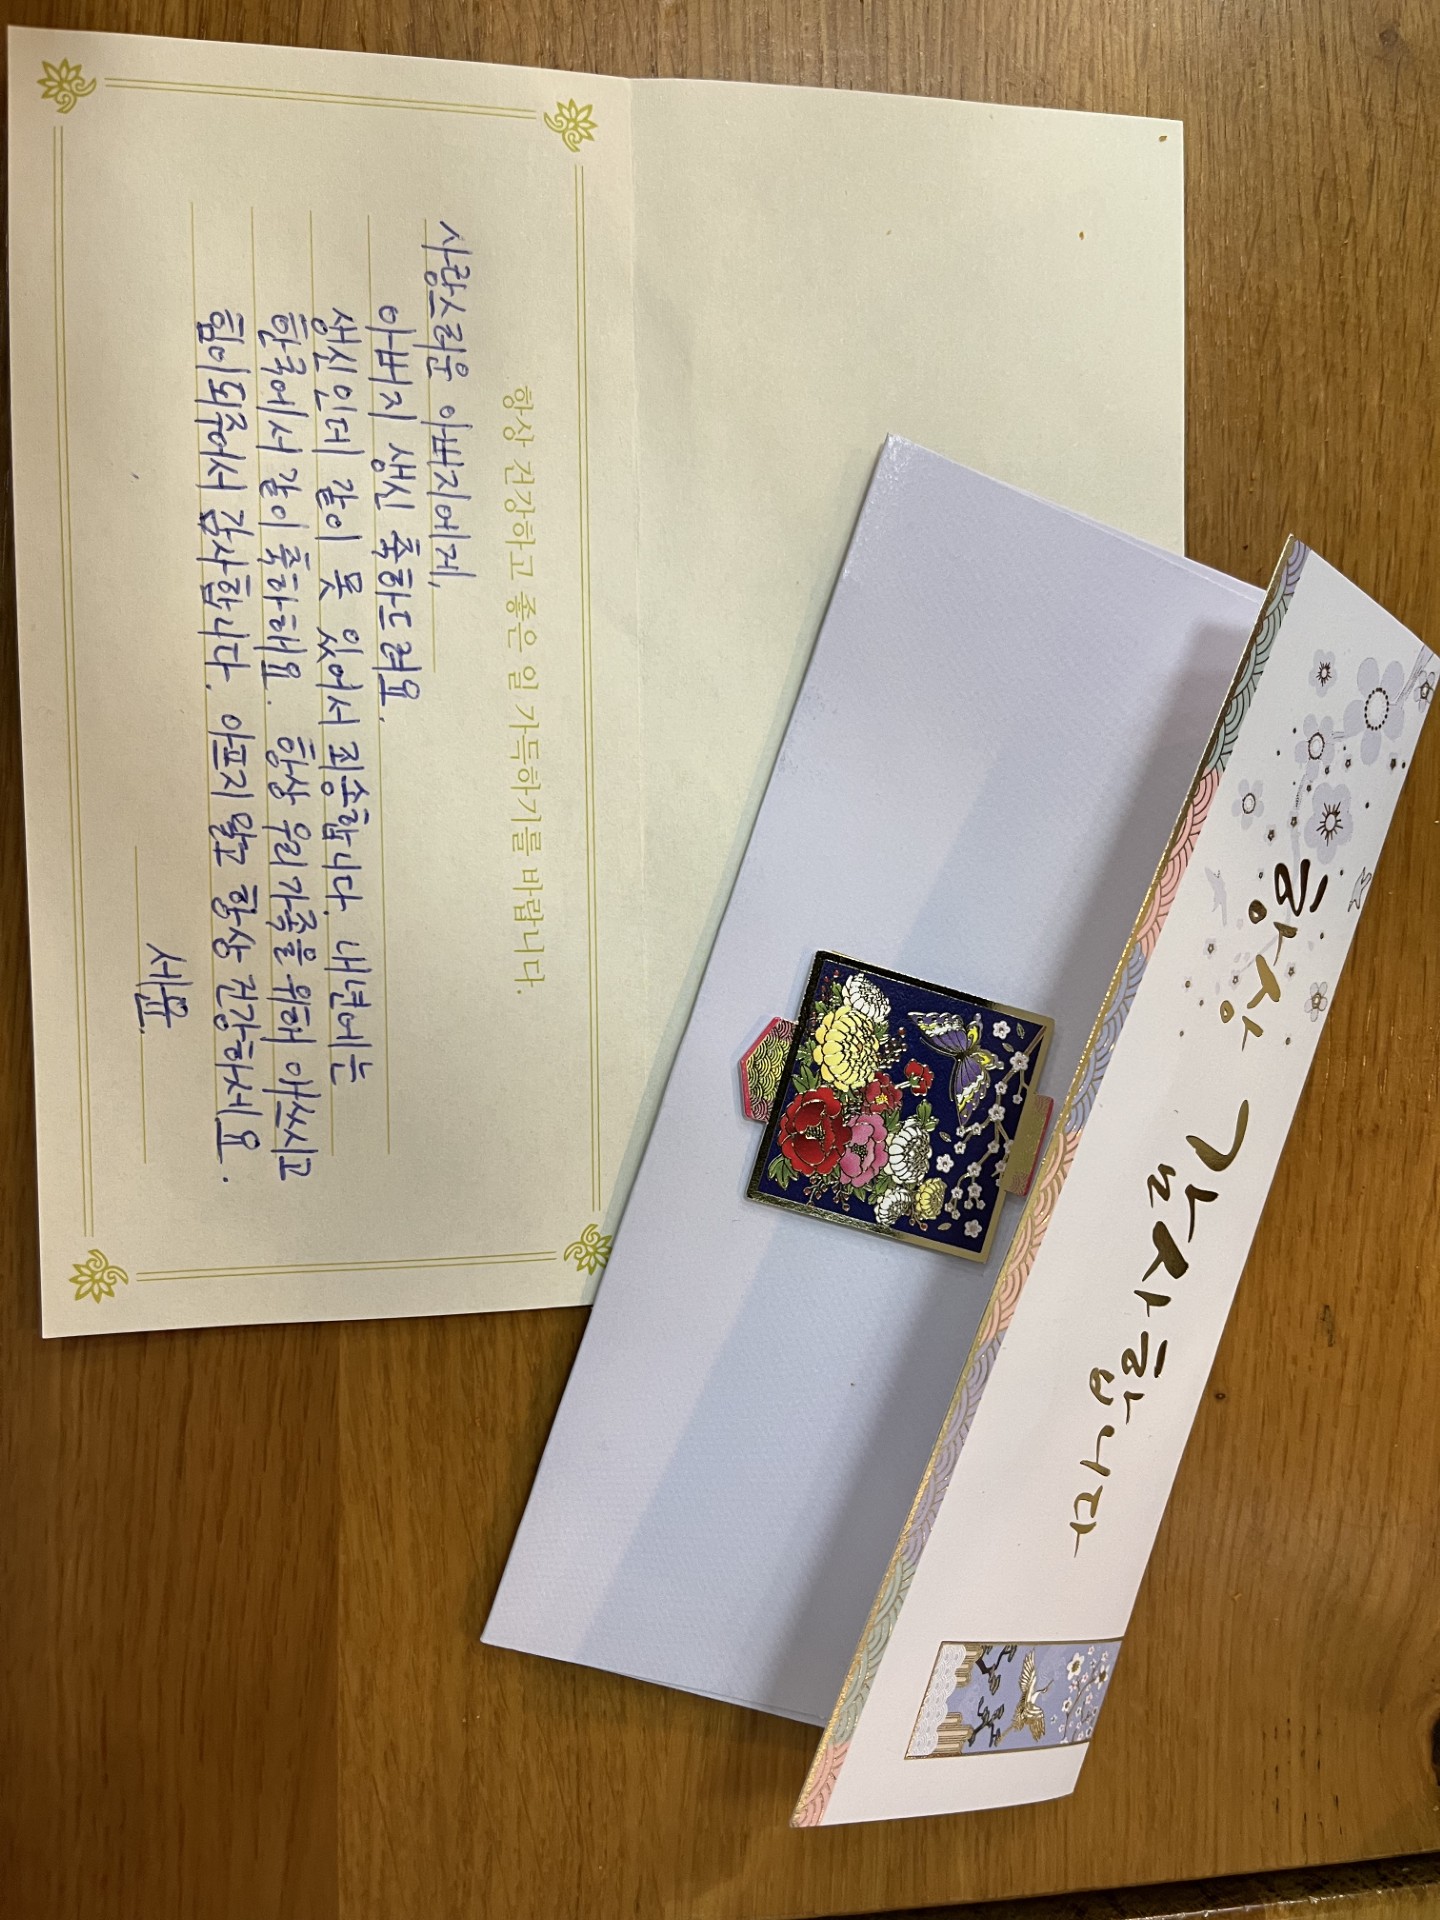 항상 감사합니다
항상 건강하고 좋은 일 가득하기를 바랍니다.
사랑스러운 아버지에게,
아버지 생신 축하드려요.
생신인데 같이 못 있어서 죄송합니다. 내년에는
한국에서 같이 축하해요. 항상 우리 가족을 위해 애쓰시고
힘이되주어서 감사합니다. 아프지 말고 항상 건강하세요.
세윤.